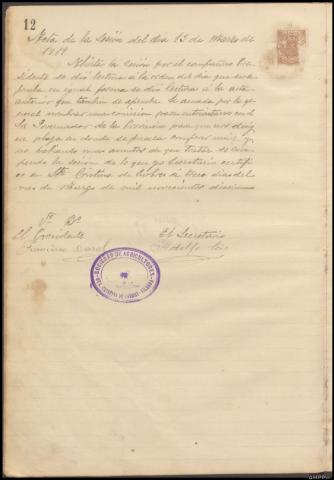 12
Acta de la Sesión del dia 13 de Marzo de
1919
Abierta la sesión por el compañero Pre-
sidente se dió lectura a la orden del dia que fue a
probada en igual forma se dió lectura a la acta
anterior que tambien se aprueba. Se acuerda por lo ge-
neral nombrar una comision para entrevistarse con el
Sr Governador de la Provincia para que nos
en plaza en donde se pueda y
no habiendo mas asuntos de que tratar se sus-
pende la sesión de lo que yo Secretario certifi-
co en Sta Cristina de Cobres á trece dias del
mes de Marzo de mil novecientos diecinueve
Vº Bº
El Presidente
El Secretario
Francisco
Adolfo
SOCIEDAD DE AGRICULTORES
STA. CRISTINA DE COBRES - VILABOA
AHPPo